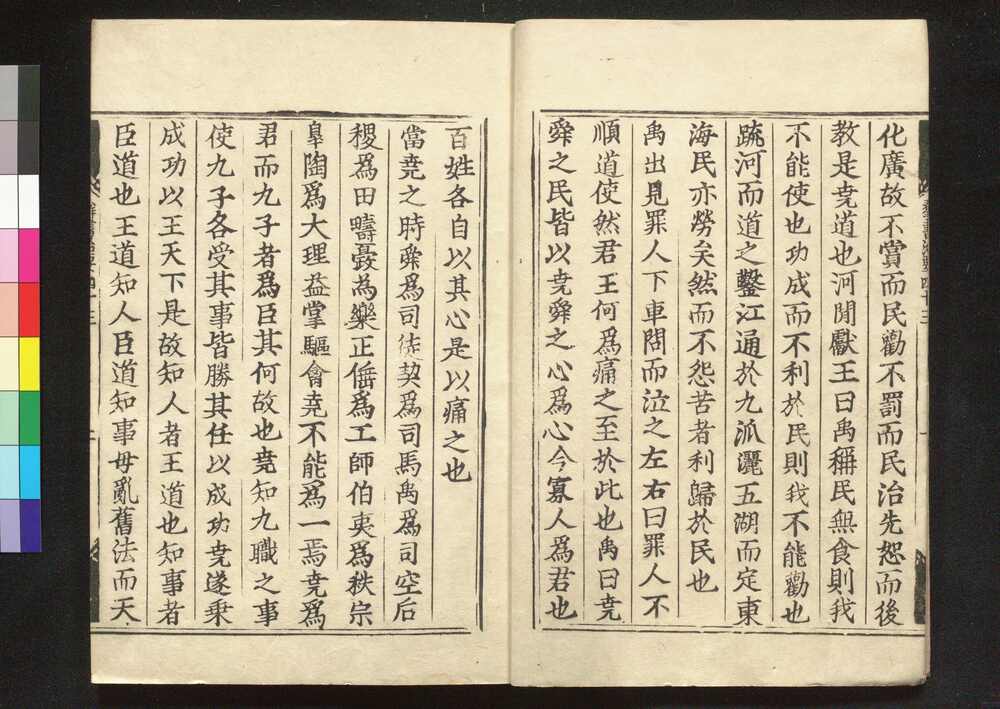 化廣故不賞而民勸不罰而民治先恕而後
教是堯道也河閒獻王曰禹稱民無食則我
不能使也功成而不利於民則我不能勸也
疏河而道之鑿江通於九泒灑五湖而定東
海民亦勞矣然而不怨苦者利歸於民也
禹出見罪人下車問而泣之左右曰罪人不
順道使然君王何爲痛之至於此也禹曰堯
舜之民皆以堯舜之心爲心今寡人爲君也
百姓各自以其心是以痛之也
當堯之時舜爲司徒契爲司馬禹爲司空后
稷爲田疇夔為樂正倕爲工師伯夷爲秩宗
皐陶爲大理益掌驅禽堯不能爲一焉堯爲
君而九子者爲臣其何故也堯知九職之事
使九子各受其事皆勝其任以成功堯遂乗
成功以王天下是故知人者王道也知事者
臣道也王道知人臣道知事毋亂舊法而天